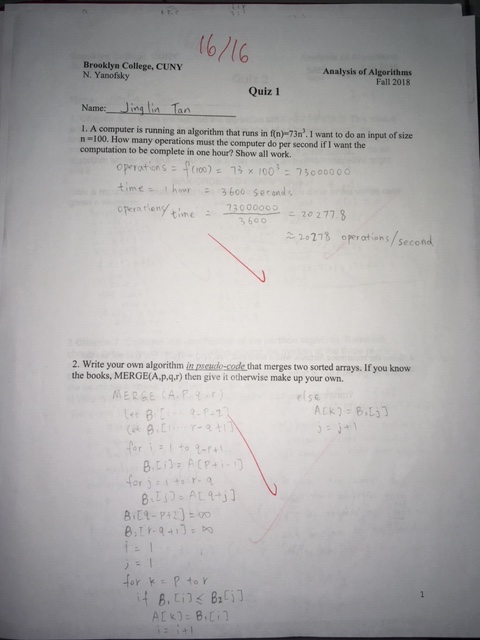 16/16
Brooklyn College, CUNY
N. Yanofsky
Analysis of Algorithms
Fall 2018
Quiz 1
Name: Jinglin Tan
1. A computer is running an algorithm that runs in f(n)=73n³. I want to do an input of size
n =100. How many operations must the computer do per second if I want the
computation to be complete in one hour? Show all work.
operations = f(100) = 73 × 100³ = 73000000
time = 1 hour = 3600 seconds
operations/time = 73000000/3600 = 20277.8
≈ 20278 operations/second
2. Write your own algorithm in pseudo-code that merges two sorted arrays. If you know
the books, MERGE(A,p,q,r) then give it otherwise make up your own.
MERGE (A, P, q, r)
let B₁[1 ... q-P+2]
let B₂[1 ... r-q+1]
for i = 1 to q-P+1
B₁[i] = A[P+i-1]
for j = 1 to r-q
B₂[j] = A[q+j]
B₁[q-P+2] = ∞
B₂[r-q+1] = ∞
i = 1
j = 1
for k = P to r
if B₁[i] ≤ B₂[j]
A[k] = B₁[i]
i = i+1
else
A[k] = B₂[j]
j = j+1
1